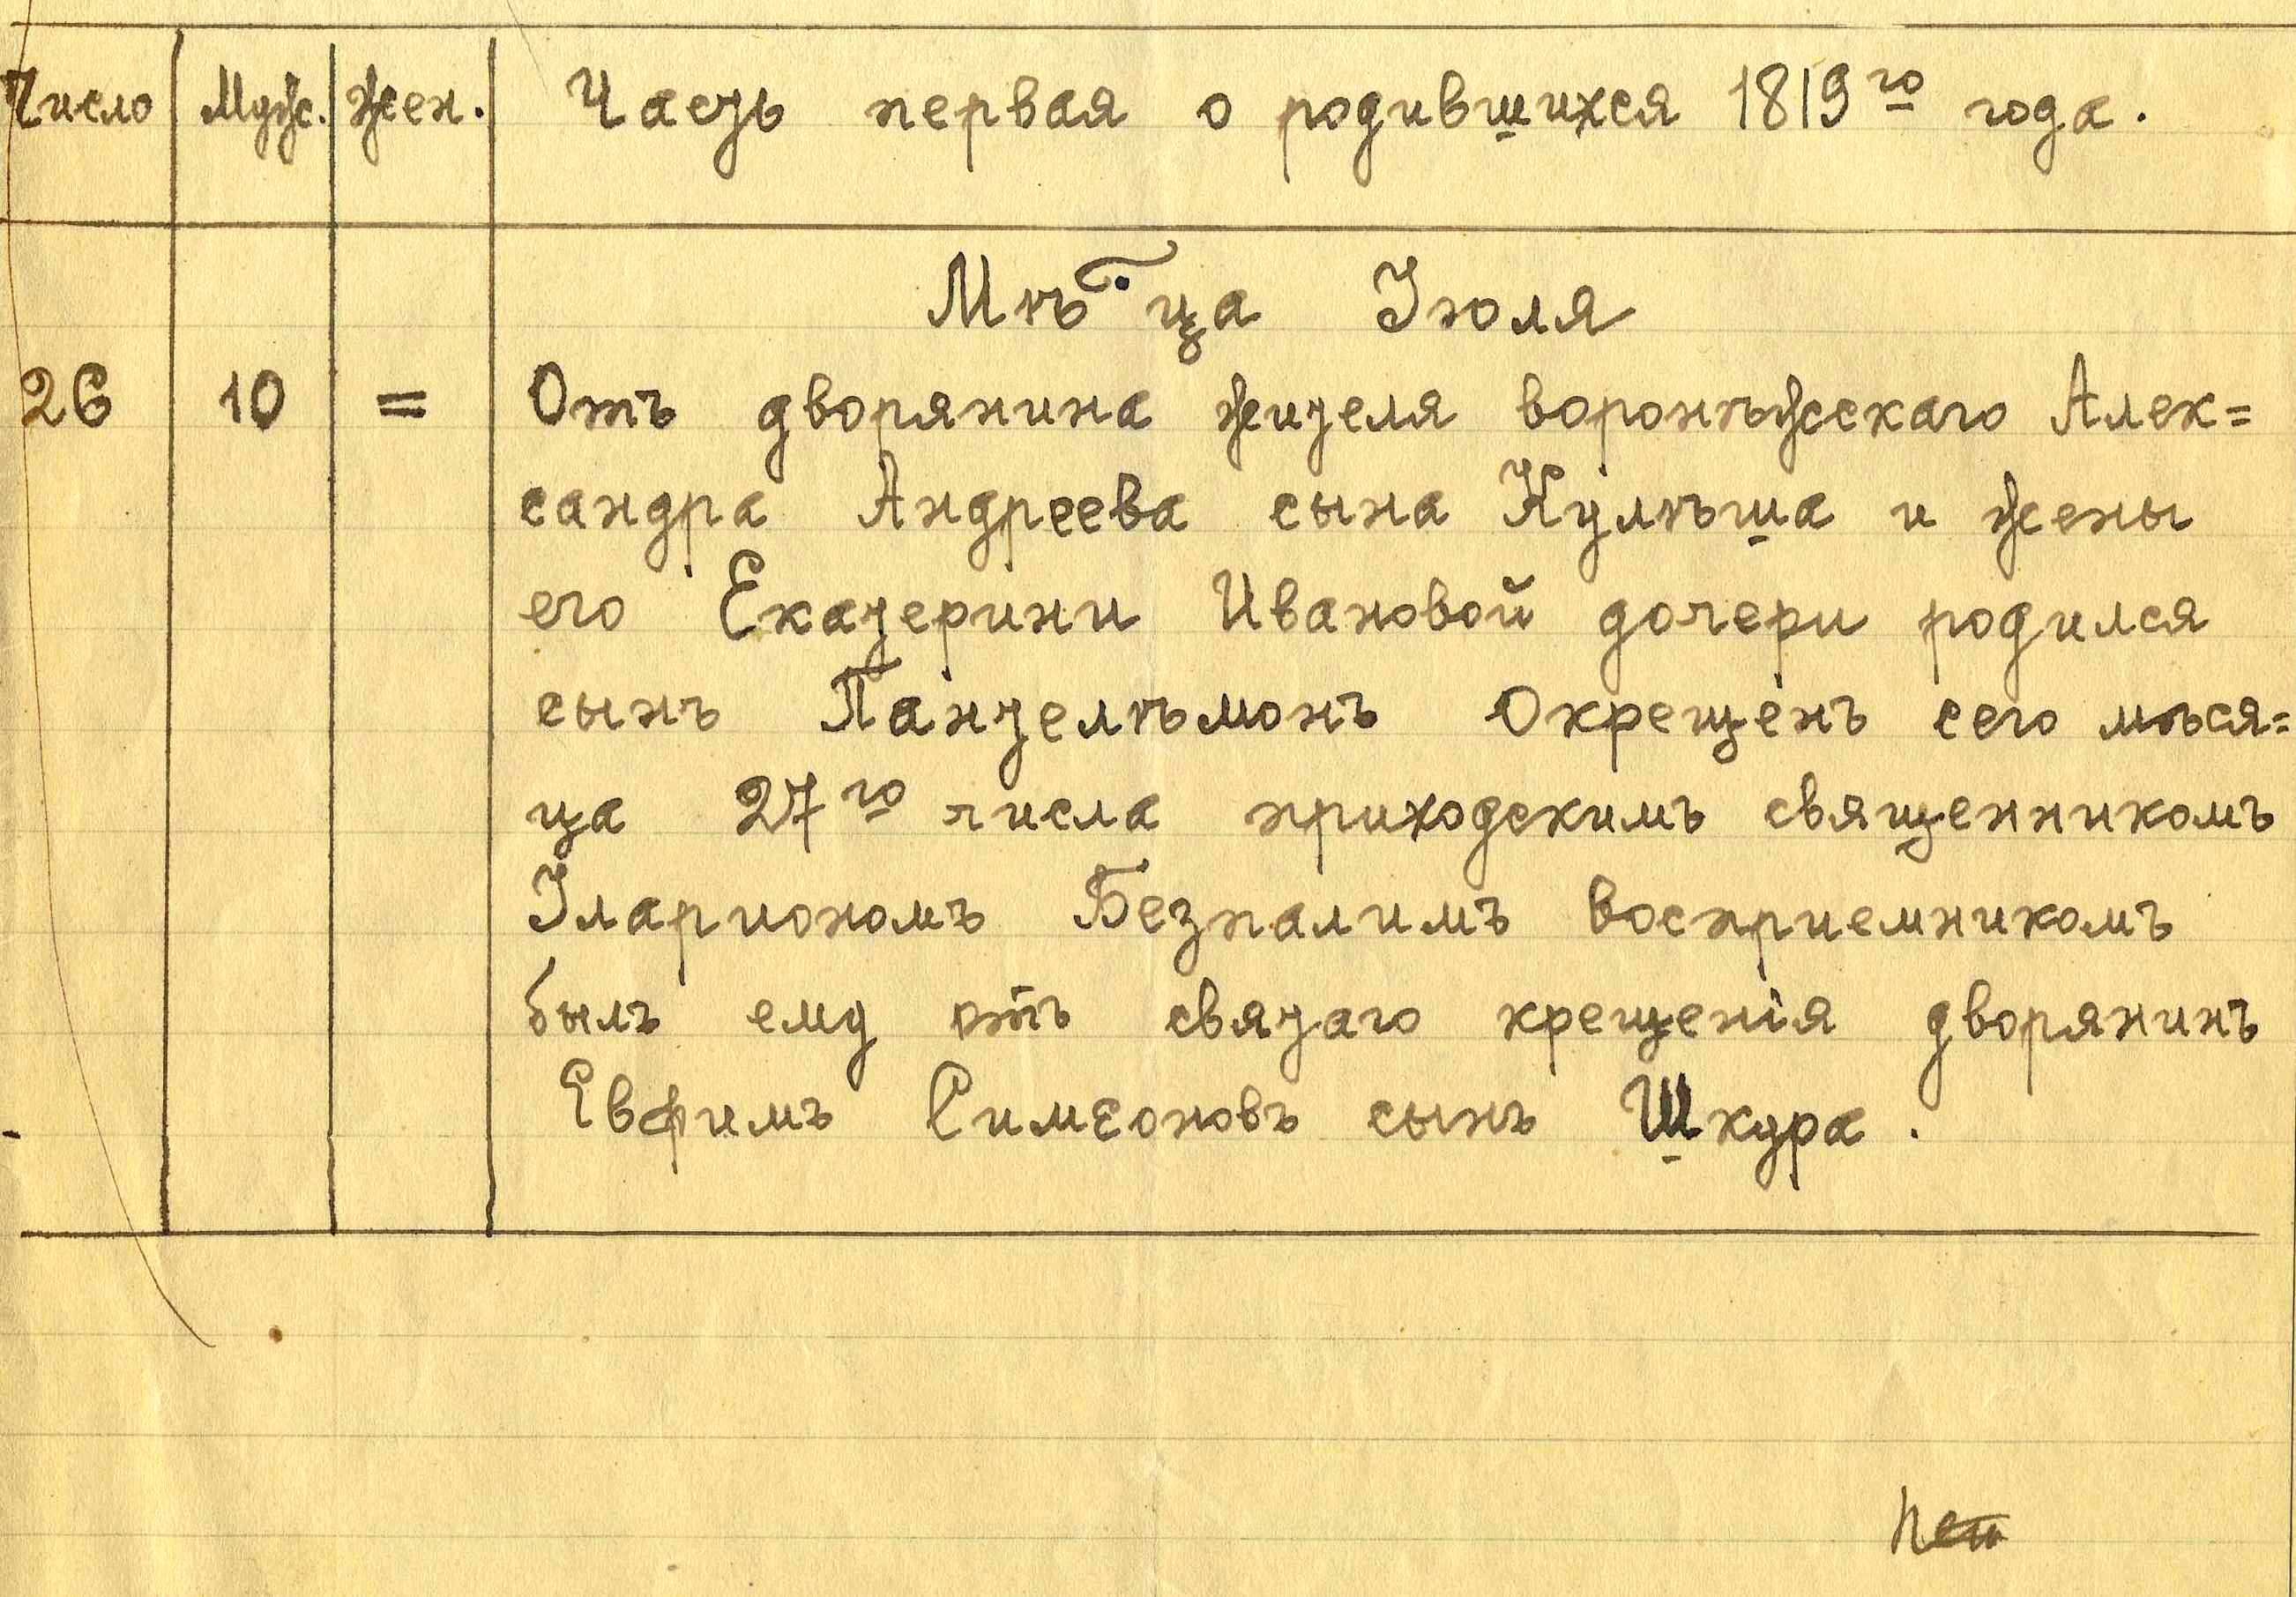 Число Муж. Жен. Часть первая о родившихся 1819го года.
Мѣ҃ца Іюля
26 10 = Отъ дворянина жителя воронѣжскаго Алек=
сандра Андреева сына Кулѣша и жены
его Екатерини Ивановой дочери родился
сынъ Пантелѣмонъ Окрещенъ сего мѣся=
ца 27го числа приходскимъ священникомъ
Ілариономъ Безпалимъ восприемникомъ
былъ ему отъ святаго крещенія дворянинъ
Евфимъ Симеоновъ сынъ Шкура.